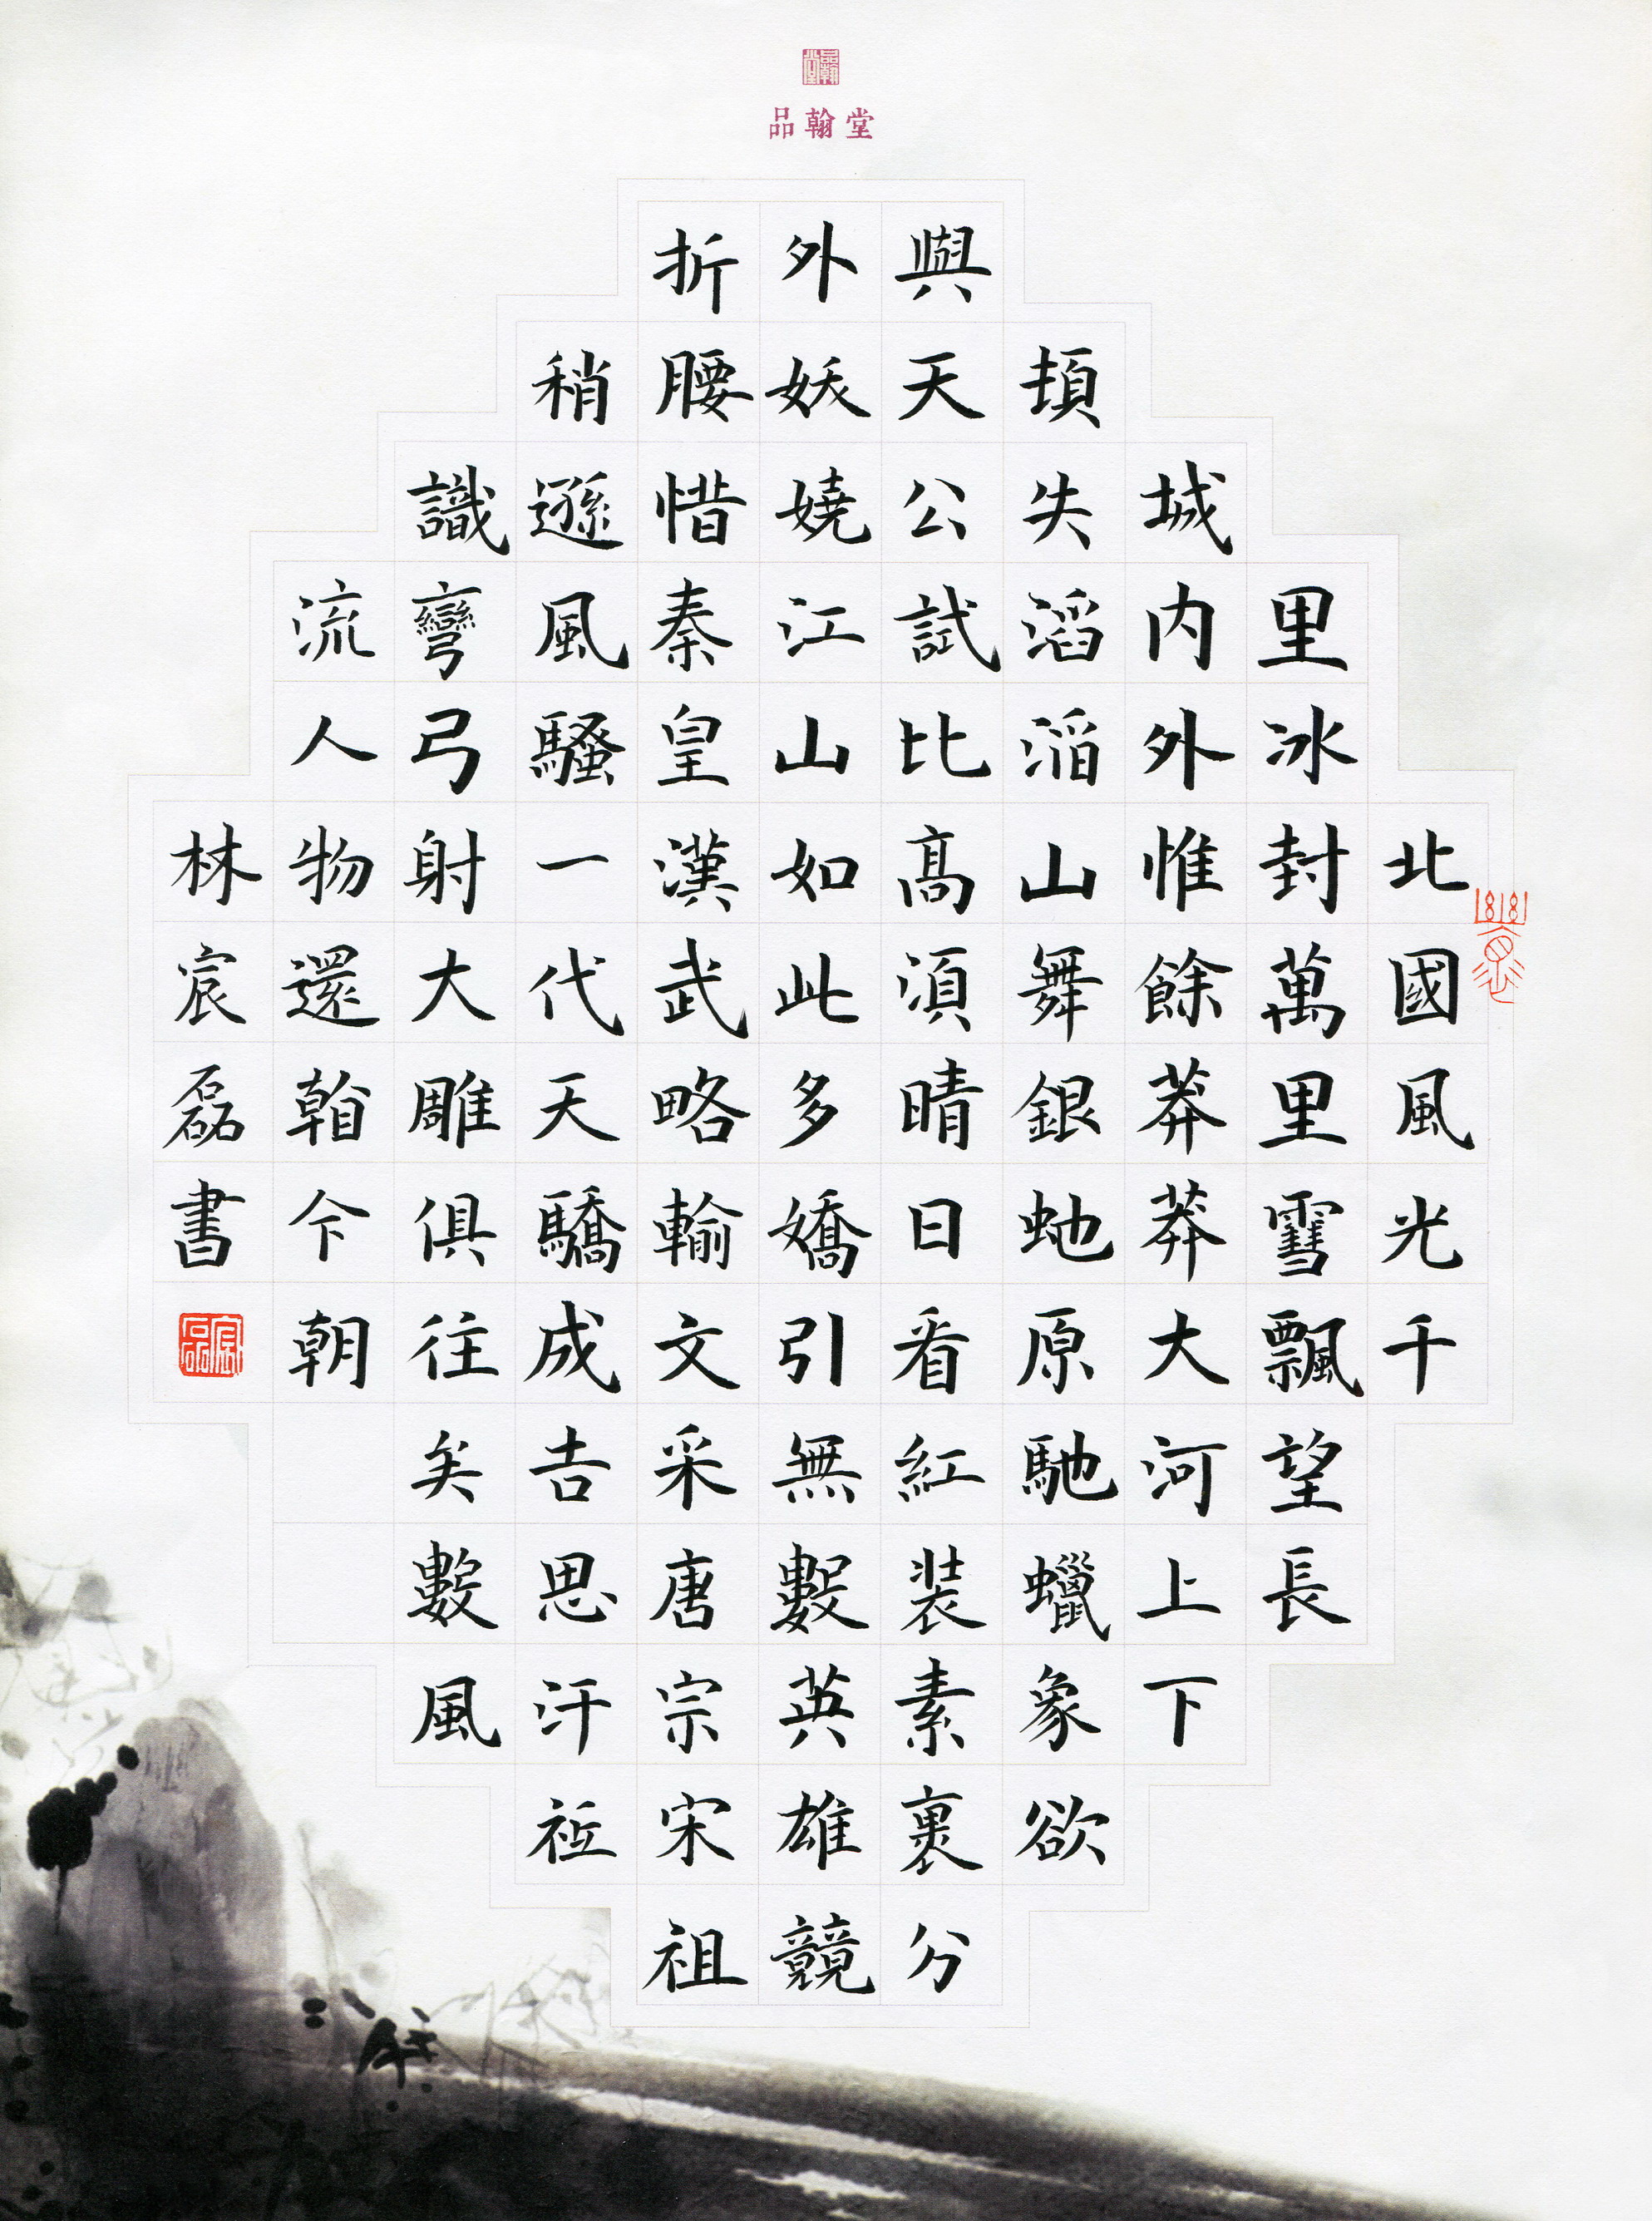 品翰堂
品翰堂
北國風光千
里冰封萬里雪飄望長
城内外惟餘莽莽大河上下
頓失滔滔山舞銀虵原馳蠟象欲
與天公試比髙湏晴日看紅装素裹分
外妖嬈江山如此多嬌引無數英雄競
折腰惜秦皇漢武略輸文采唐宗宋祖
稍遜風騷一代天驕成吉思汗祗
識彎弓射大雕俱往矣數風
流人物還看今朝
林宸磊書
宸磊